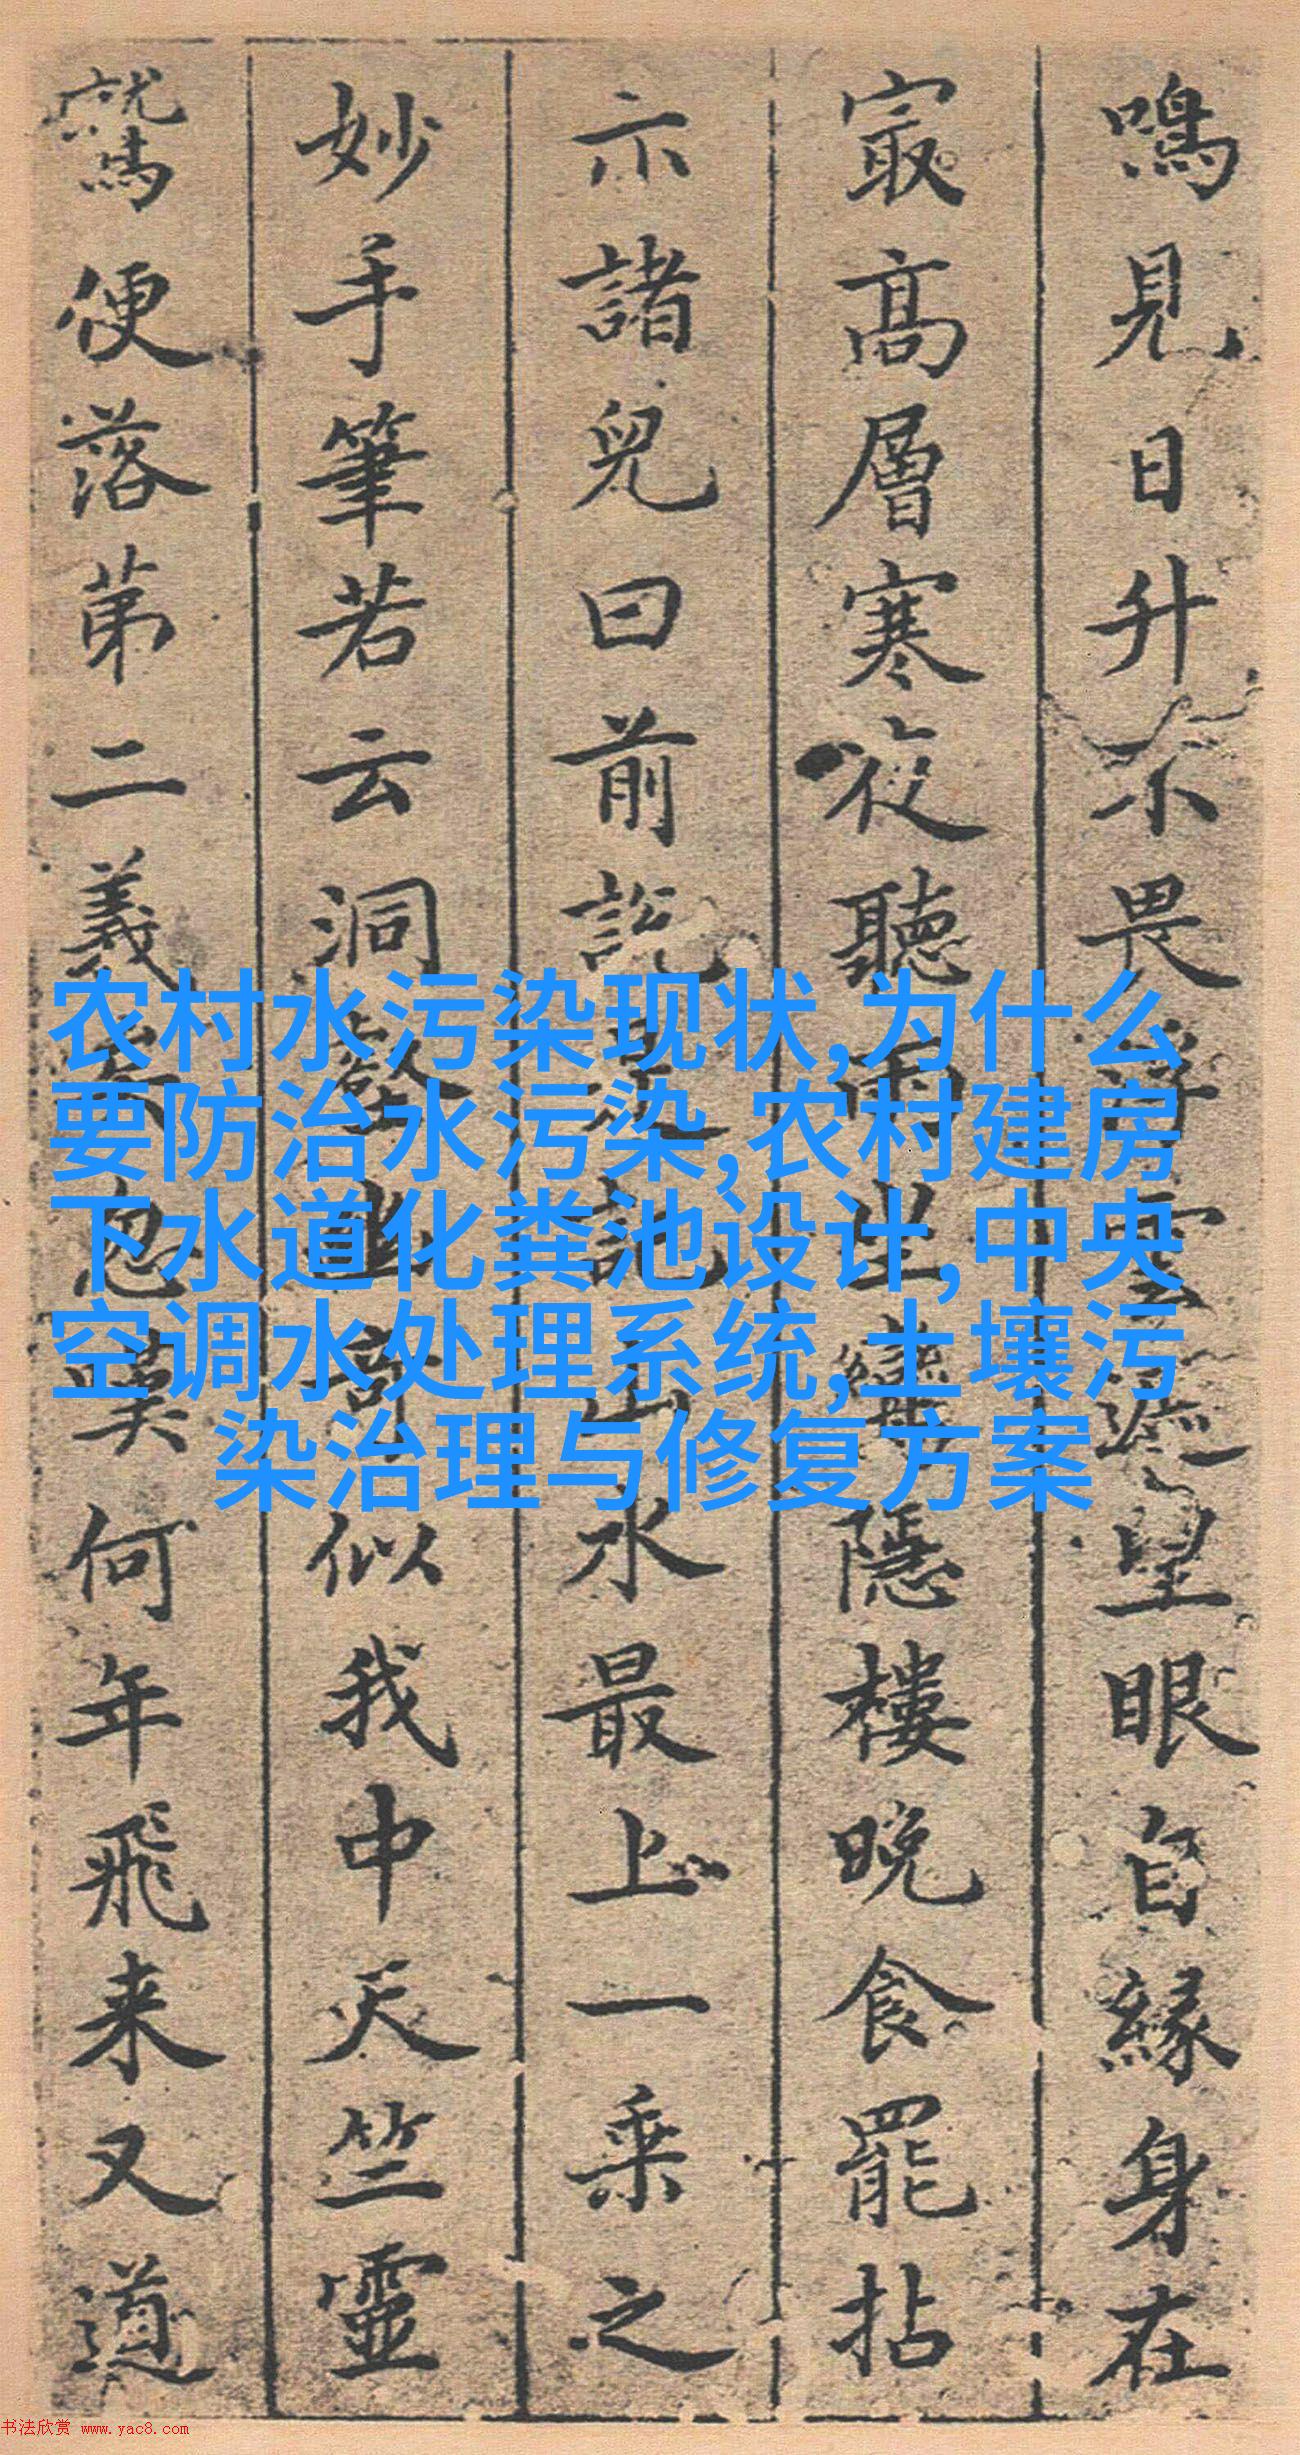 鳴見日升不畏浮雲遮望眼自緣身在
㝡高層寒夜聽雨坐隱樓晚食罷拈
示諸兒曰前説是記山水最上一乘之
妙手筆若云洞壑幽奇似我中天竺靈
鷲便落第二義忽嘆何年飛来又道
农村水污染现状,为什么
要防治水污染,农村建房
下水道化粪池设计,中央
空调水处理系统,土壤污
染治理与修复方案
书法欣赏 www.yac8.com